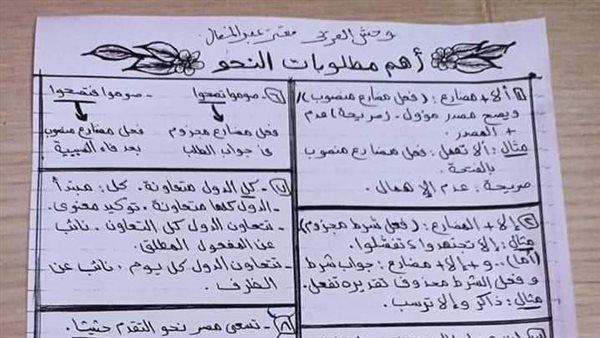 وحش العربي معتز عبد المتعال
أهم مطلوبات النحو
① ألا + مضارع : (فعل مضارع منصوب)
ويصح مصدر مؤول - (صريحة) عدم
+ المصدر.
مثال : ألا تهمل : فعل مضارع منصوب
بالفتحة
صريحة : عدم الإهمال .
② إلا + المضارع : (فعل شرط مجزوم)
مثال : إلا تجتهدوا تفشلوا .
(أما) .. و + إلا + مضارع : جواب شرط
و فعل الشرط محذوف تقديره تفعل.
مثال : ذاكر وإلا ترسب .
⑥ - صوموا تصحوا - صوموا فتصحوا
فعل مضارع مجزوم فعل مضارع منصوب
في جواب الطلب بعد فاء السببية
⑦ - كل الدول متعاونة . كل : مبتدأ
- الدول كلها متعاونة . توكيد معنوي .
- تتعاون الدول كل التعاون . نائب
عن المفعول المطلق .
- تتعاون الدول كل يوم . نائب عن
الظرف .
⑧ - تسعى مصر نحو التقدم حثيثا .